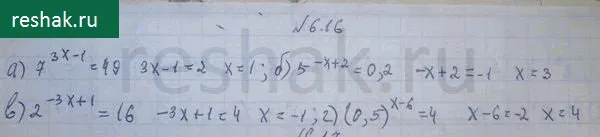 reshak.ru
№6.16
а) 7^{3x-1}=49 3x-1=2 x=1; б) 5^{-x+2}=0,2 -x+2=-1 x=3
в) 2^{-3x+1}=16 -3x+1=4 x=-1; г) (0,5)^{x-6}=4 x-6=-2 x=4